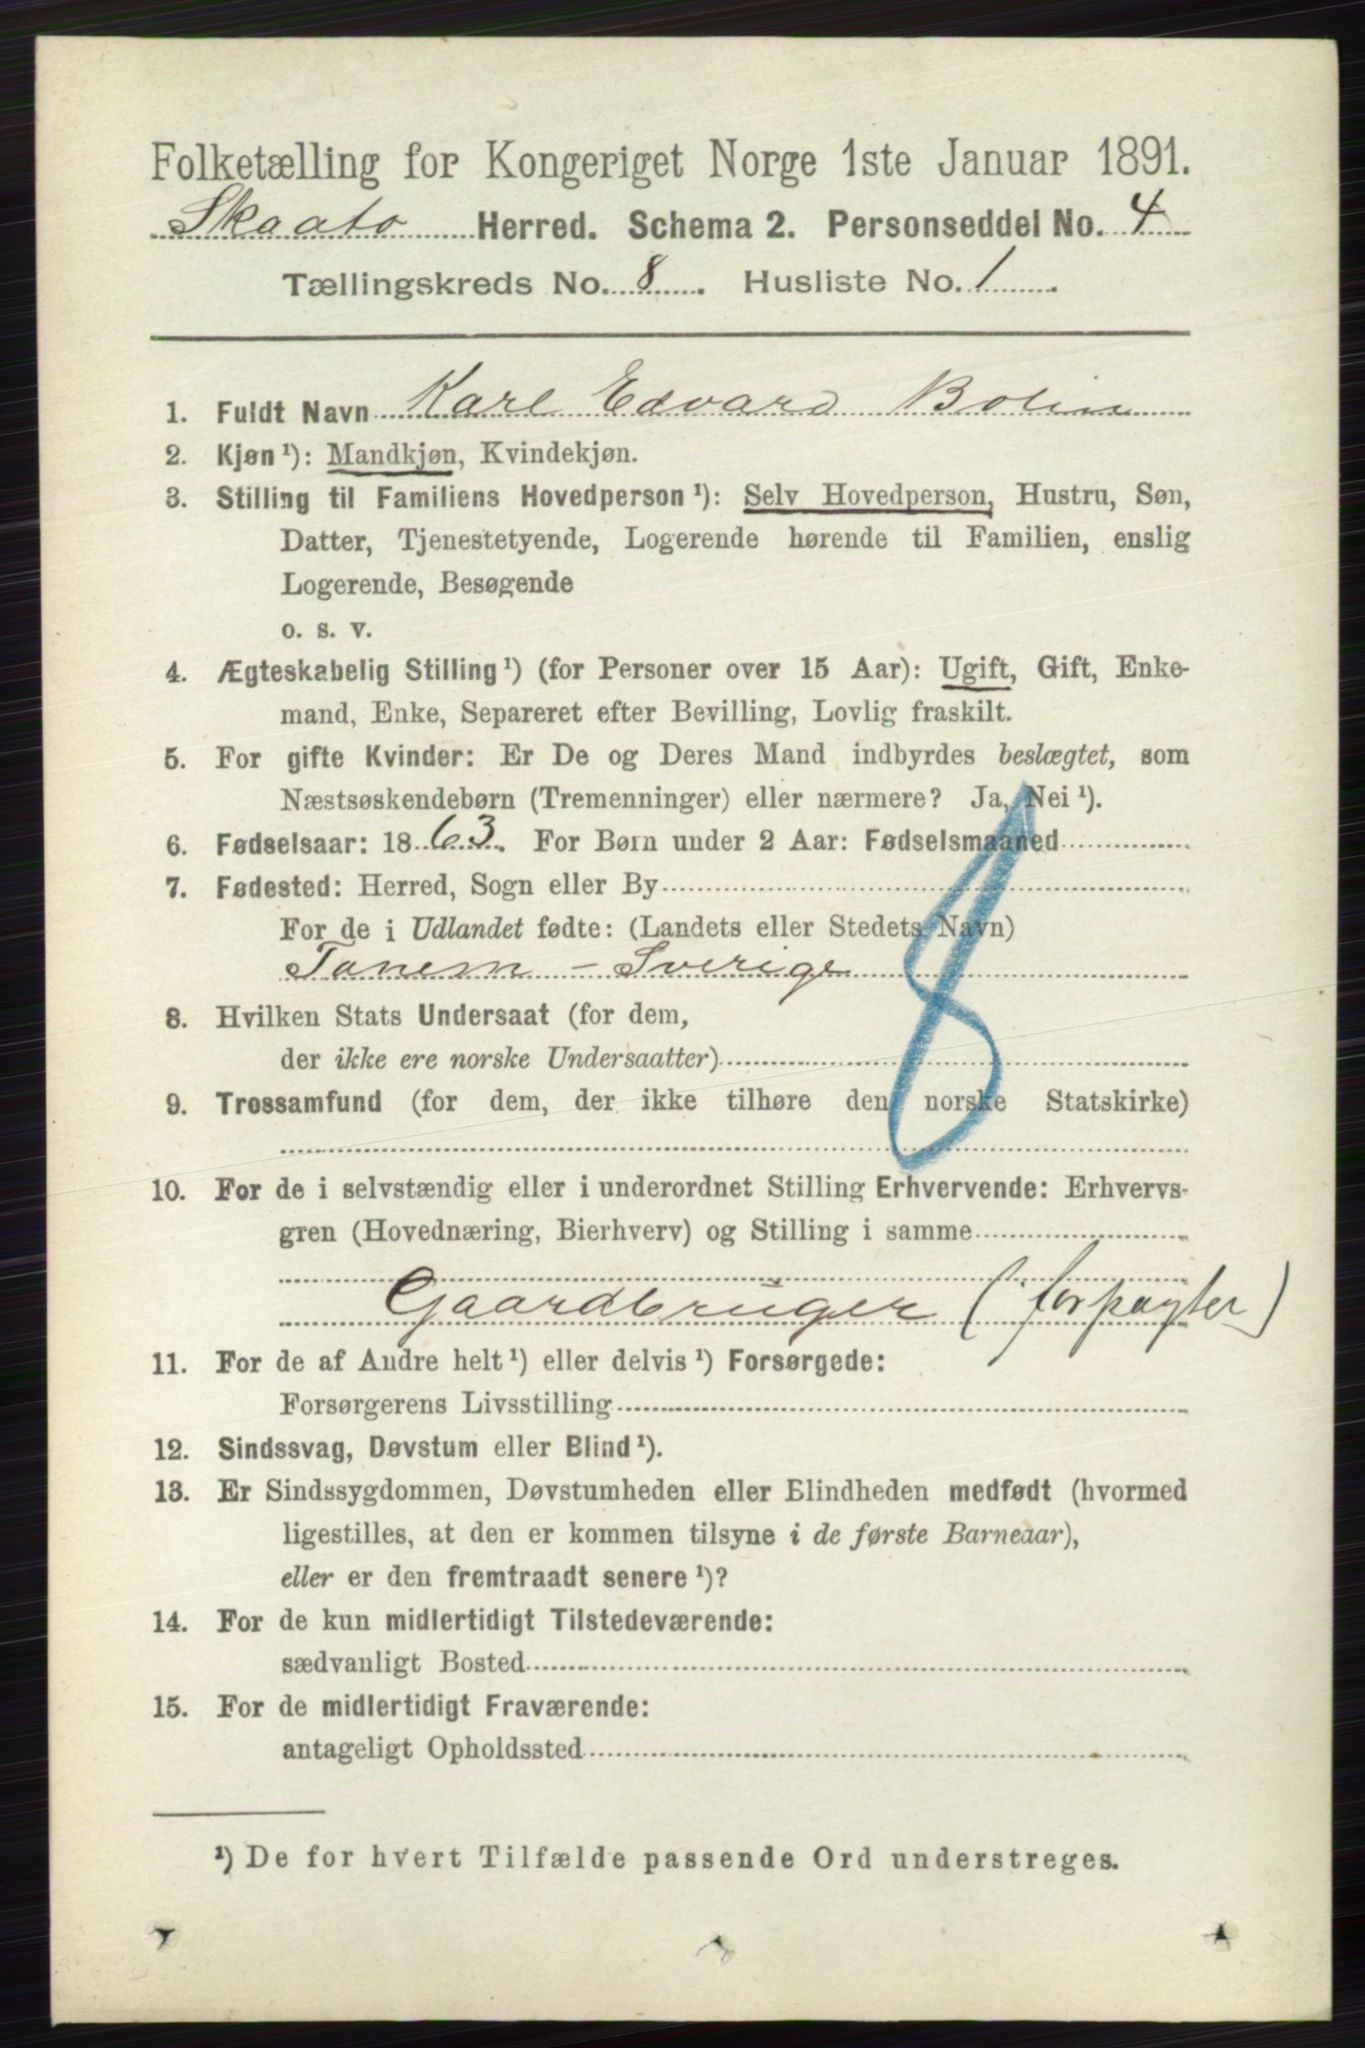 Folketælling for Kongeriget Norge 1ste Januar 1891.
Skaatø Herred. Schema 2. Personseddel No. 4
Tællingskreds No. 8. Husliste No. 1.
1. Fuldt Navn Karl Edvard Bolin
2. Kjøn¹): Mandkjøn, Kvindekjøn.
3. Stilling til Familiens Hovedperson¹): Selv Hovedperson, Hustru, Søn,
Datter, Tjenestetyende, Logerende hørende til Familien, enslig
Logerende, Besøgende
o. s. v.
4. Ægteskabelig Stilling¹) (for Personer over 15 Aar): Ugift, Gift, Enke-
mand, Enke, Separeret efter Bevilling, Lovlig fraskilt.
5. For gifte Kvinder: Er De og Deres Mand indbyrdes beslægtet, som
Næstsøskendebørn (Tremenninger) eller nærmere? Ja, Nei¹).
6. Fødselsaar: 1863. For Børn under 2 Aar: Fødselsmaaned
7. Fødested: Herred, Sogn eller By
For de i Udlandet fødte: (Landets eller Stedets Navn)
Tanem - Sverige
8. Hvilken Stats Undersaat (for dem,
der ikke ere norske Undersaatter)
9. Trossamfund (for dem, der ikke tilhøre den norske Statskirke)
8
10. For de i selvstændig eller i underordnet Stilling Erhvervende: Erhvervs-
gren (Hovednæring, Bierhverv) og Stilling i samme
Gaardbruger (forpagter)
11. For de af Andre helt¹) eller delvis¹) Forsørgede:
Forsørgerens Livsstilling
12. Sindssvag, Døvstum eller Blind¹).
13. Er Sindssygdommen, Døvstumheden eller Blindheden medfødt (hvormed
ligestilles, at den er kommen tilsyne i de første Barneaar),
eller er den fremtraadt senere¹)?
14. For de kun midlertidigt Tilstedeværende:
sædvanligt Bosted
15. For de midlertidigt Fraværende:
antageligt Opholdssted
¹) De for hvert Tilfælde passende Ord understreges.